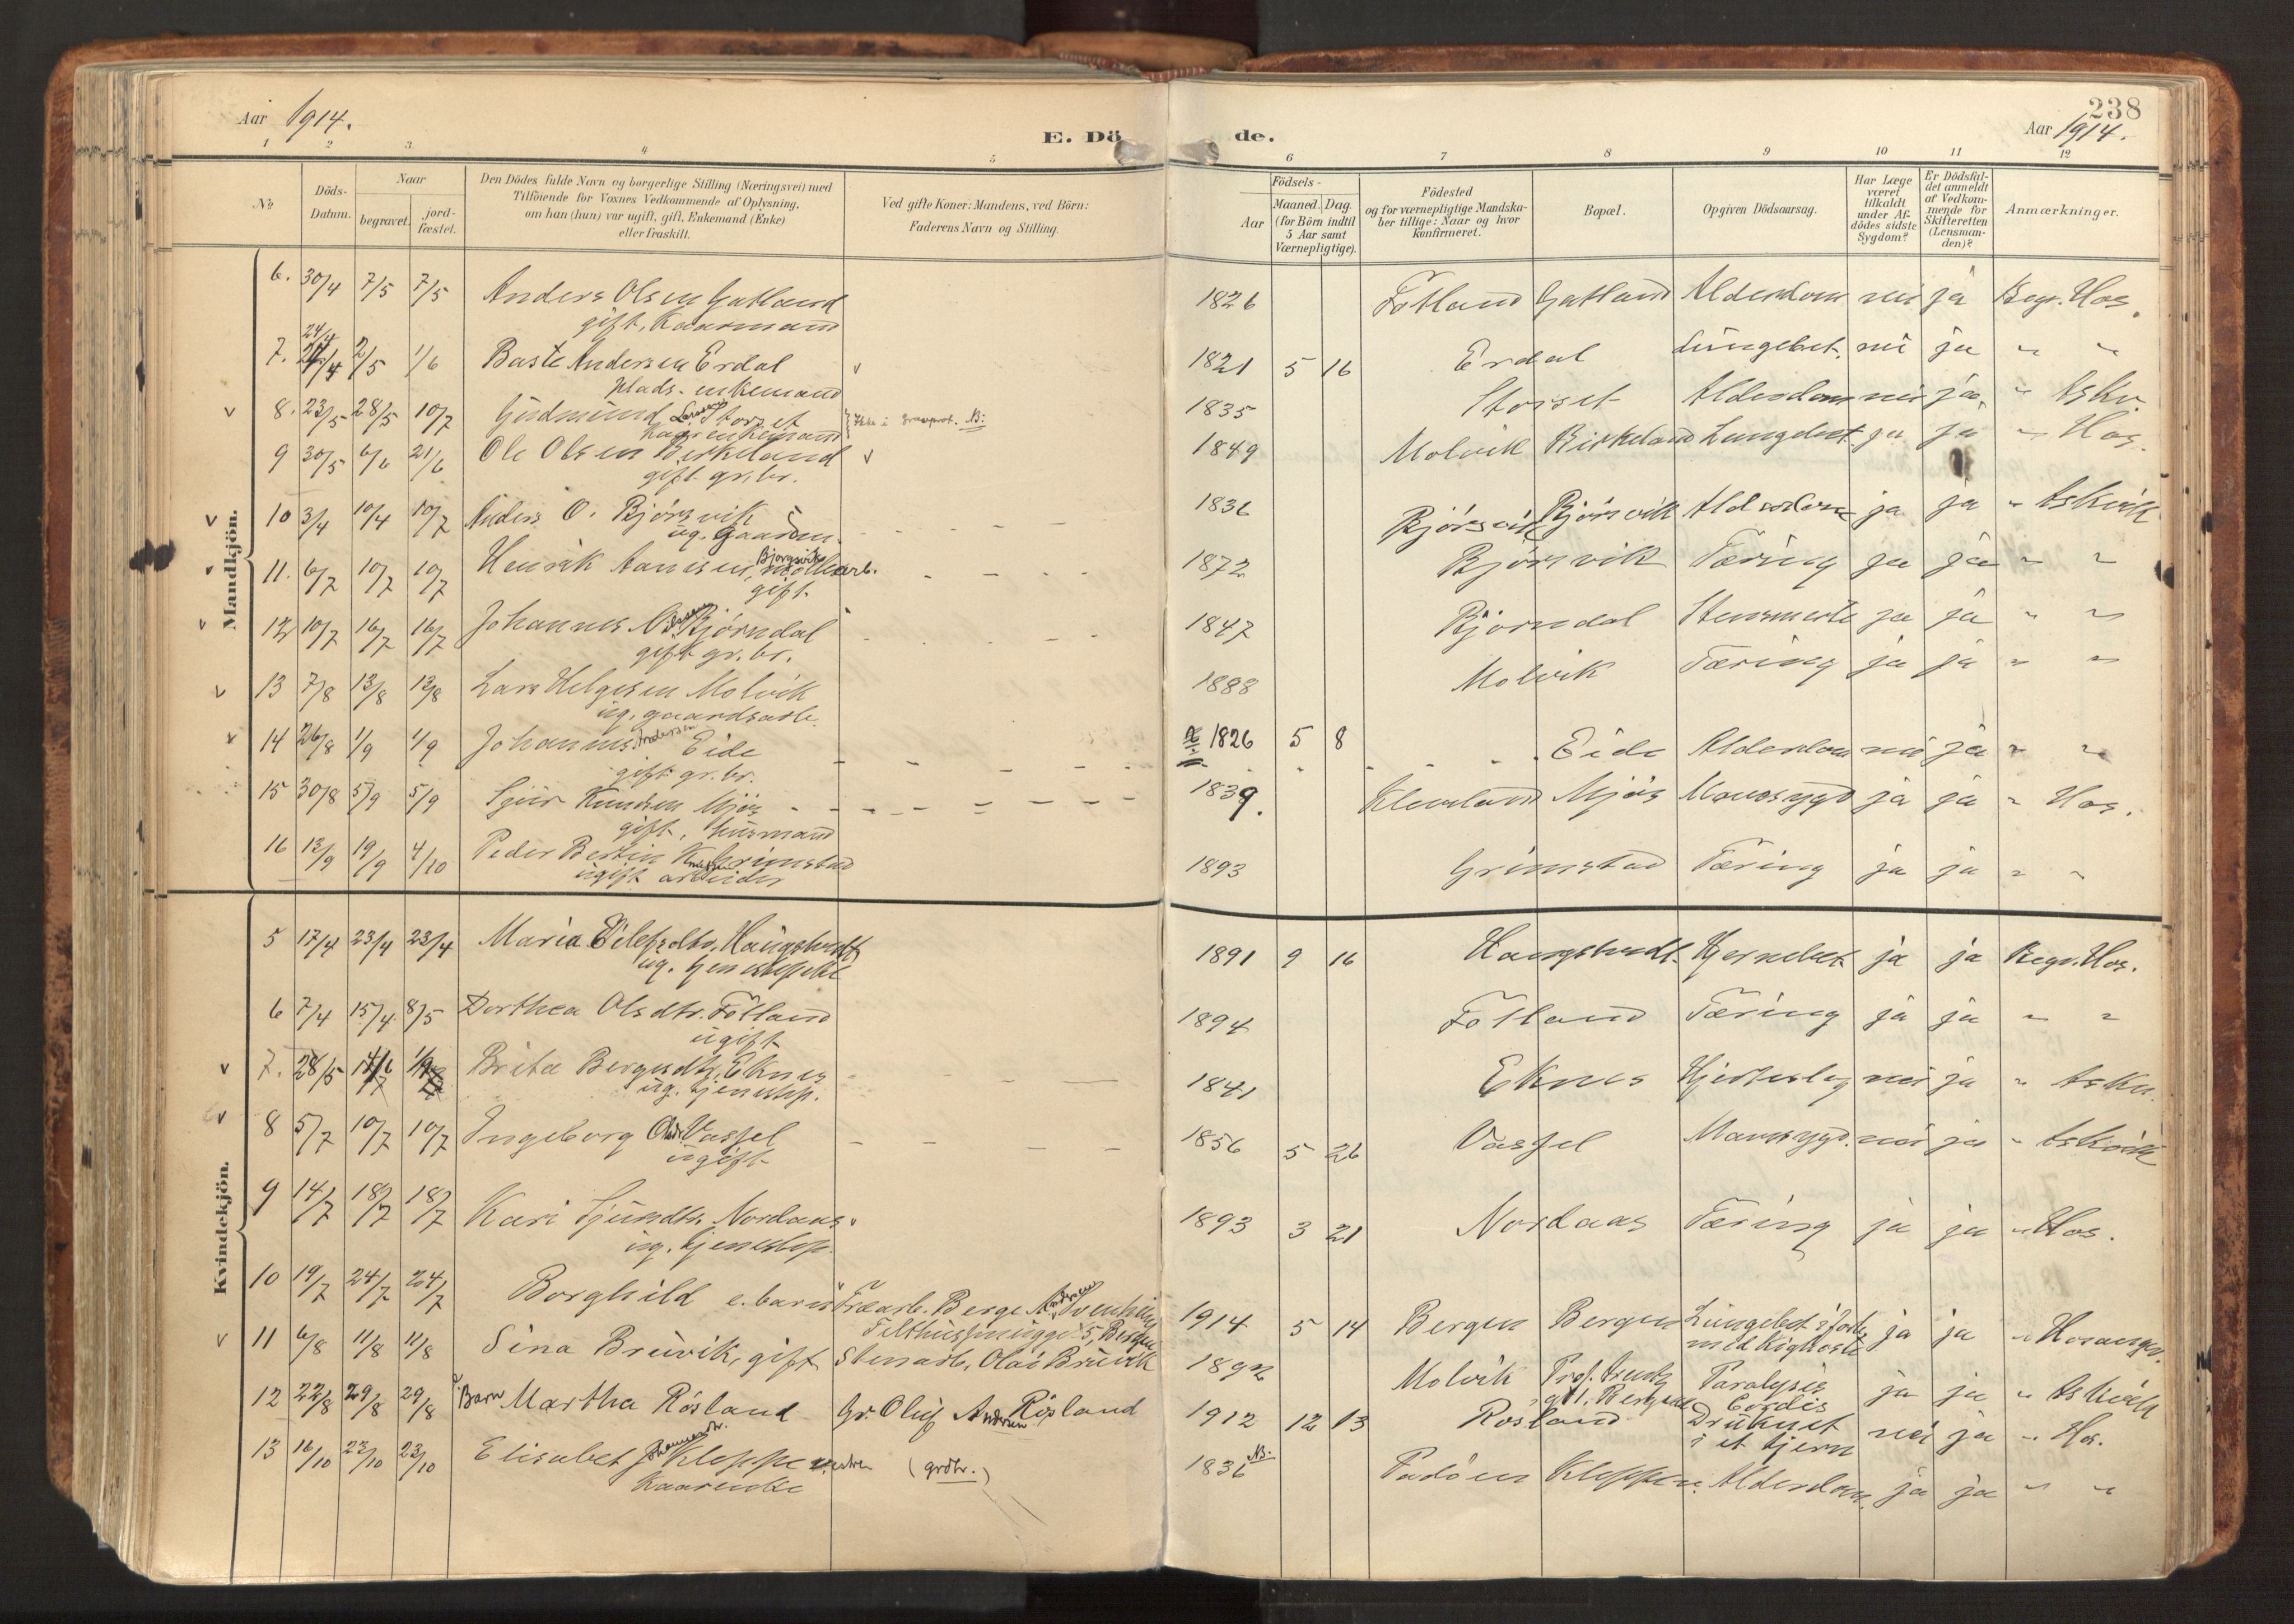 Aar 1914.
E. Dö
de.
238
Aar 1914.
1 2 3. 4 5 6 7 8 9 10 11 12
No
Döds-
Datum.
Naar
begravet.
jord-
fæstet.
Den Dödes fulde Navn og borgerlige Stilling (Næringsvei) med
Tilföiende for Voxnes Vedkommende af Oplysning,
om han (hun) var ugift, gift, Enkemand (Enke)
eller fraskilt.
Ved gifte Koner: Mandens, ved Börn:
Faderens Navn og Stilling.
Födsels-
Aar
Maaned. Dag.
(for Börn indtil
5 Aar samt
Værnepligtige).
Födested
og for værnepligtige Mandska-
ber tillige: Naar og hvor
konfirmeret.
Bopæl.
Opgiven Dödsaarsag.
Har Læge
været
tilkaldt
under Af-
dödes sidste
Sygdom?
Er Dödsfal-
det anmeldt
af Vedkom-
mende for
Skifteretten
(Lensman-
den)?
Anmærkninger.
Mandkjön.
6. 30/4 7/5 7/5 Anders Olsen Gatland 1826 Fotland Gatland Alderdom nei ja Begr. Hos.
gift, Kaarmand
24/4
7. 2/5 1/6 Baste Andersen Erdal v 1821 5 16 Erdal Lungebet. nei ja " "
enkemand
v 8. 23/5 28/5 10/7 Gudmund Larsen Storset Ikke i Gravprot. NB: 1835 Storset Alderdom nei ja " Askv.
Kaarenkemand
9 30/5 6/6 21/6 Ole Olsen Birkeland v 1849 Molvik Birkeland Lungebet ja ja " Hos.
gift gr. br.
v 10 3/4 10/4 10/7 Anders O. Bjørsvik 1836 Bjørsvik Bjørsvik Alderdom ja ja " Askvik
ug. gaardm.
v 11. 6/7 10/7 10/7 Henrik Hansen Bjorsvik, møllearb. 1872 Bjørsvik Tæring ja ja " "
gift
v 12 10/7 16/7 16/7 Johannes Bjørndal 1847 Bjørndal ja ja " "
gift gr. br.
v 13 7/8 13/8 13/8 Lars Helgesen Molvik 1888 Molvik Tæring ja ja " "
ug. gaardsarb.
v 14 26/8 1/9 1/9 Johannes Andersen Eide 1826 5 8 Eide Alderdom nei ja " "
gift gr. br.
15 30/8 5/9 5/9 Sjur Knudsen Mjøs 1839. Kleveland Mjøs Mavesygd ja ja " Hos.
gift, husmand
16 13/9 19/9 4/10 Peder Bertin K. Grimstad 1893 Grimstad Tæring ja ja " "
ugift arbeider
Kvindekjön.
5 17/4 23/4 23/4 Maria Eilefsdtr. Haugstvedt 1891 9 16 Haugstvedt Hjernebet ja ja Begr. Hos.
ug. tjenestepike
6 7/4 15/4 8/5 Dorthea Olsdtr. Fotland 1894 Fotland Tæring ja ja " "
ugift
v 7. 28/5 Brita Bergesdtr. Eknes 1841 Eknes Hjerteslag nei ja " Askv.
ug. tjenestep.
v 8 5/7 10/7 10/7 Ingeborg Olsd. Vassel 1856 5 26 Vassel Mavesygd. nei ja " Askvik
ugift
9 14/7 18/7 18/7 Kari Sjursdtr. Nordaas 1893 3 21 Nordaas Tæring ja ja " Hos.
ug. tjenestep.
10 19/7 24/7 24/7 Borghild e. barn Træarb. Berge Andersen 1914 5 14 Bergen Bergen Lungebet. i forb. ja ja " Hosanger.
5, Bergen med Kighoste
v 11 6/8 11/8 11/8 Sina Bruvik, gift Stenarb. Olai Bruvik 1892 Molvik Prof. Paralysis ja ja " Askvik
Bergen Cordis
12 22/8 29/8 29/8 Barn Martha Røsland Gr. Oluf Andersen Røsland 1912 12 13 Rosland Druknet nei ja " Hos.
i et tjern
13 16/10 23/10 23/10 Elisabet Johannesdtr. Kleppe (grdbr.) 1836 NB. Padøen Kleppen Alderdom ja ja " "
Kaarenke